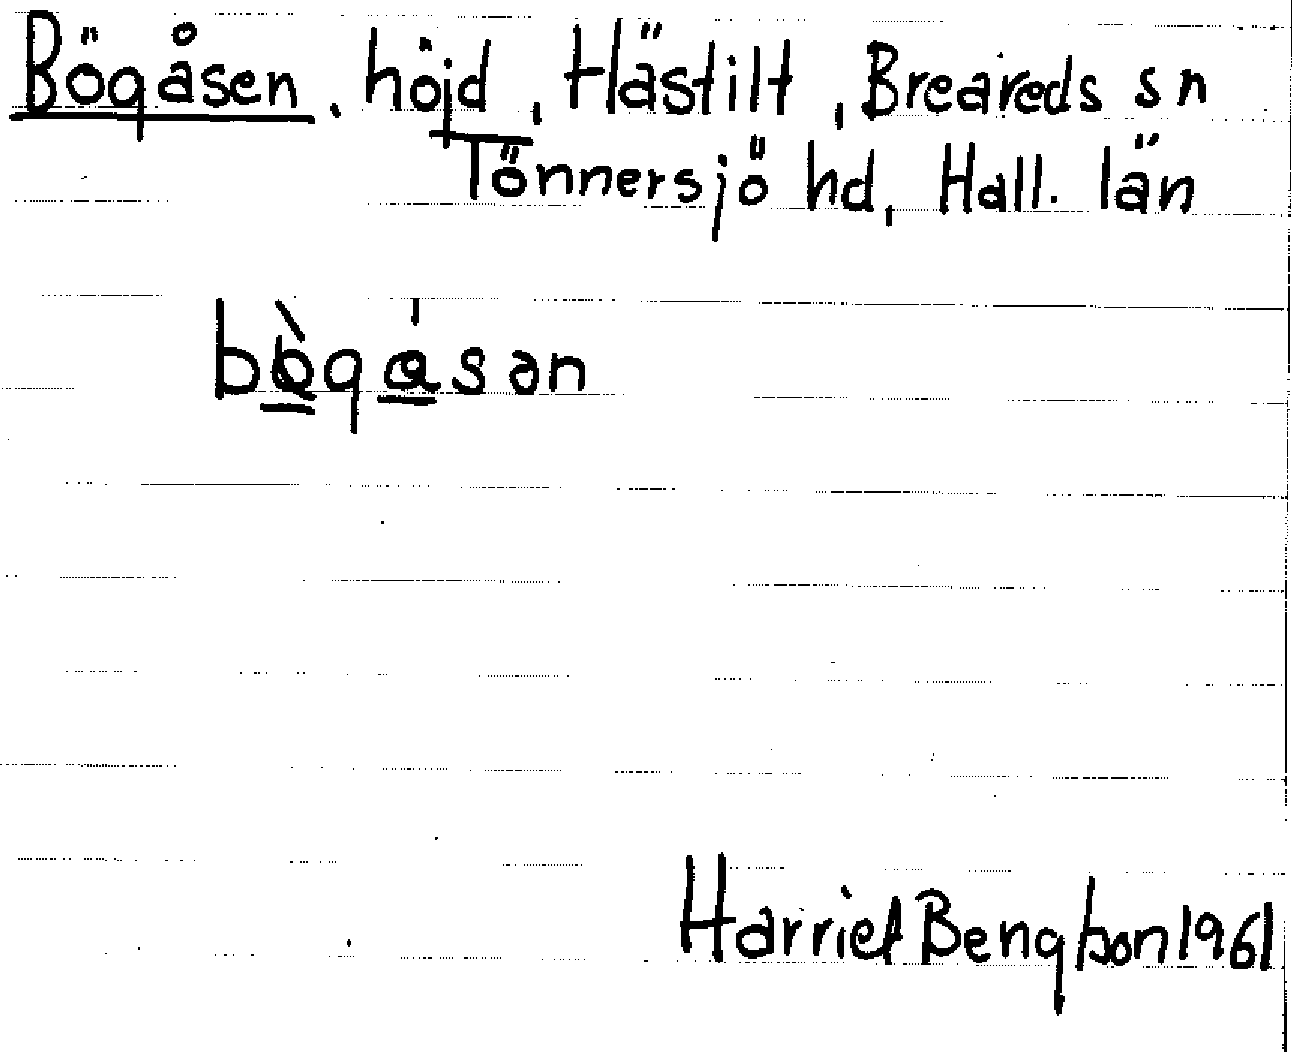 Bögåsen, höjd, Hästilt, Breareds sn
Tönnersjö hd, Hall. län
bògåsən
Harriet Bengtson 1961